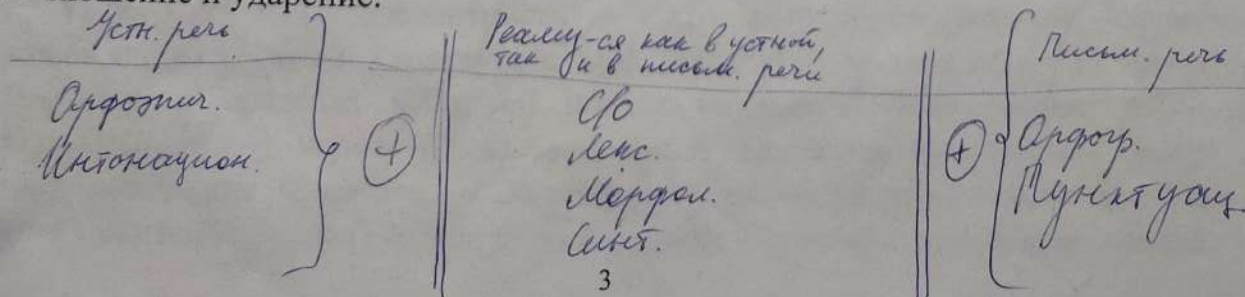 ношение и ударение.
Устн. речь
Орфоэпич.
Интонацион.
+
Реализу-ся как в устной,
так и в письм. речи
С/О
Лекс.
Морфол.
Синт.
+
Письм. речь
Орфогр.
Пунктуац.
3